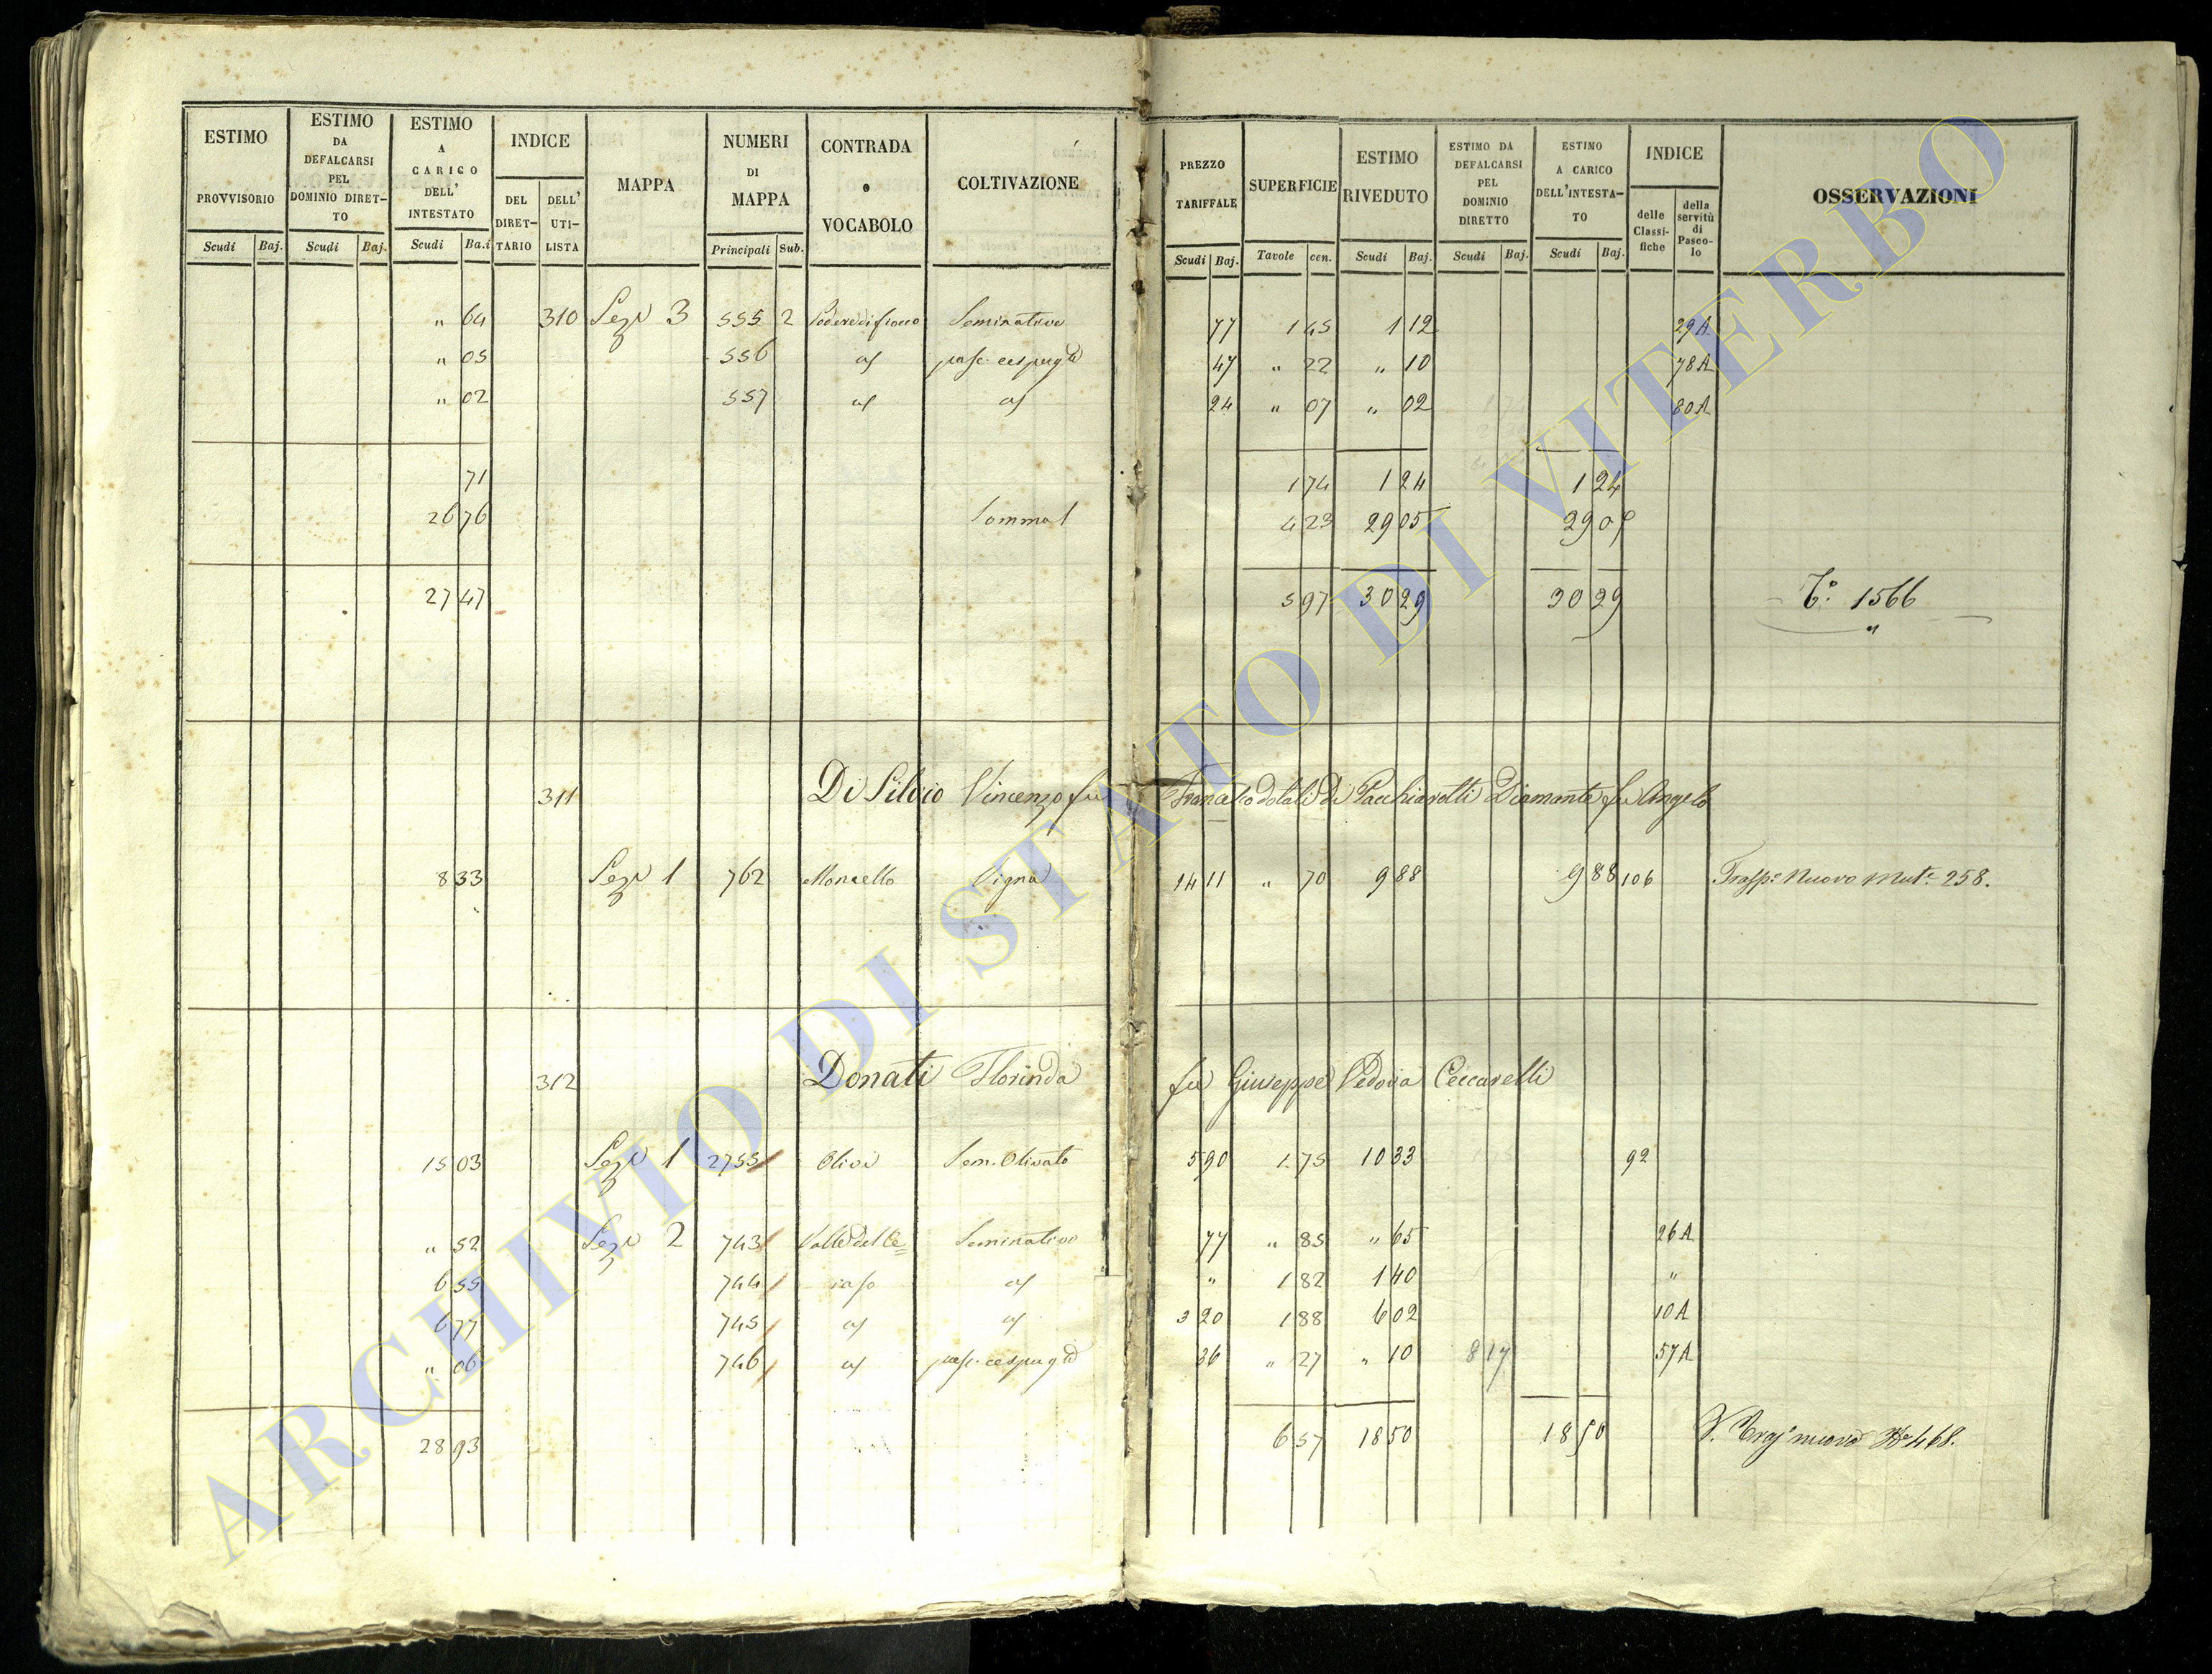 ESTIMO PROVVISORIO Scudi Baj.
ESTIMO DA DEFALCARSI PEL DOMINIO DIRET- TO Scudi Baj.
ESTIMO A CARICO DELL' INTESTATO Scudi Ba.i
INDICE DEL DIRET- TARIO DELL' UTI- LISTA
MAPPA
NUMERI DI MAPPA Principali Sub.
CONTRADA o VOCABOLO
COLTIVAZIONE
PREZZO TARIFFALE Scudi Baj.
SUPERFICIE Tavole cen.
ESTIMO RIVEDUTO Scudi Baj.
ESTIMO DA DEFALCARSI PEL DOMINIO DIRETTO Scudi Baj.
ESTIMO A CARICO DELL'INTESTA- TO Scudi Baj.
INDICE delle Classi- fiche della servitù di Pasco- lo
OSSERVAZIONI
" 64 310 Sez. 3 555 2 Seminativo 77 1 45 1 12 29A
" 05 556 pasc. cespug. 47 " 22 " 10 78A
" 02 557 24 " 07 " 02 80A
71 1 74 1 24 1 24
26 76 Somma 4 23 29 05 29 05
27 47 5 97 30 29 30 29 1566
311 Di Silvio Vincenzo fu Francesco dotali di Pacchiarotti Diamante fu Angelo
8 33 Sez. 1 762 Moncello Vigna 14 11 " 70 9 88 9 88 106 Trasp. Nuovo Mut. 258.
312 Donati Florinda fu Giuseppe Vedova Ceccarelli
15 03 Sez. 1 2755 Olivi Sem. Olivato 5 90 1 75 10 33 92
" 52 Sez. 2 743 Valle del Ce= Seminativo 77 " 85 " 65 26A
6 55 744 raso " 1 82 1 40 "
6 77 745 3 20 1 88 6 02 10A
" 06 746 pasc. cespug. 36 " 27 " 10 8 17 57A
28 93 6 57 18 50 18 50 nuovo 468.
ARCHIVIO DI STATO DI VITERBO